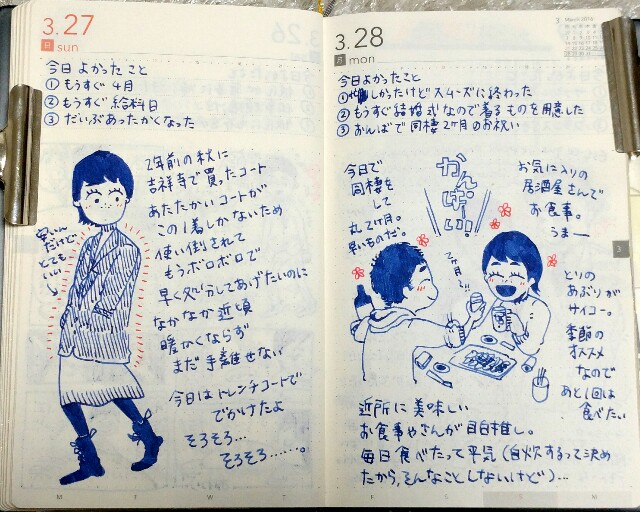 3.27
日 sun
今日よかったこと
① もうすぐ4月
② もうすぐ給料日
③ だいぶあったかくなった
2年前の秋に
吉祥寺で買ったコート
あたたかいコートが
この1着しかないため
使い倒されて
もうボロボロで
早く処分してあげたいのに
なかなか近頃
暖かくならず
まだ手離せない
今日はトレンチコートで
でかけたよ
そろそろ…
そろそろ……。
安いん
だけど
とても
いい
M
T
W
T
3.28
月 mon
March 2016
今日よかったこと
① しかったけどスムーズに終わった
② もうすぐ結婚式なので着るものを用意した
③ おんばで同棲2ヶ月のお祝い
今日で
同棲を
して
丸2ヶ月。
早いものだ。
かんぱい!
お気に入りの
居酒屋さんで
お食事。
うまー
2ヶ月〜!!
とりの
あぶりが
サイコー。
季節の
オススメ
なので
あと1回は
食べたい
近所に美味しい
お食事やさんが目白推し。
毎日食べたって平気(自炊するって決め
たから、そんなことしないけど)…
3
F
S
S
M